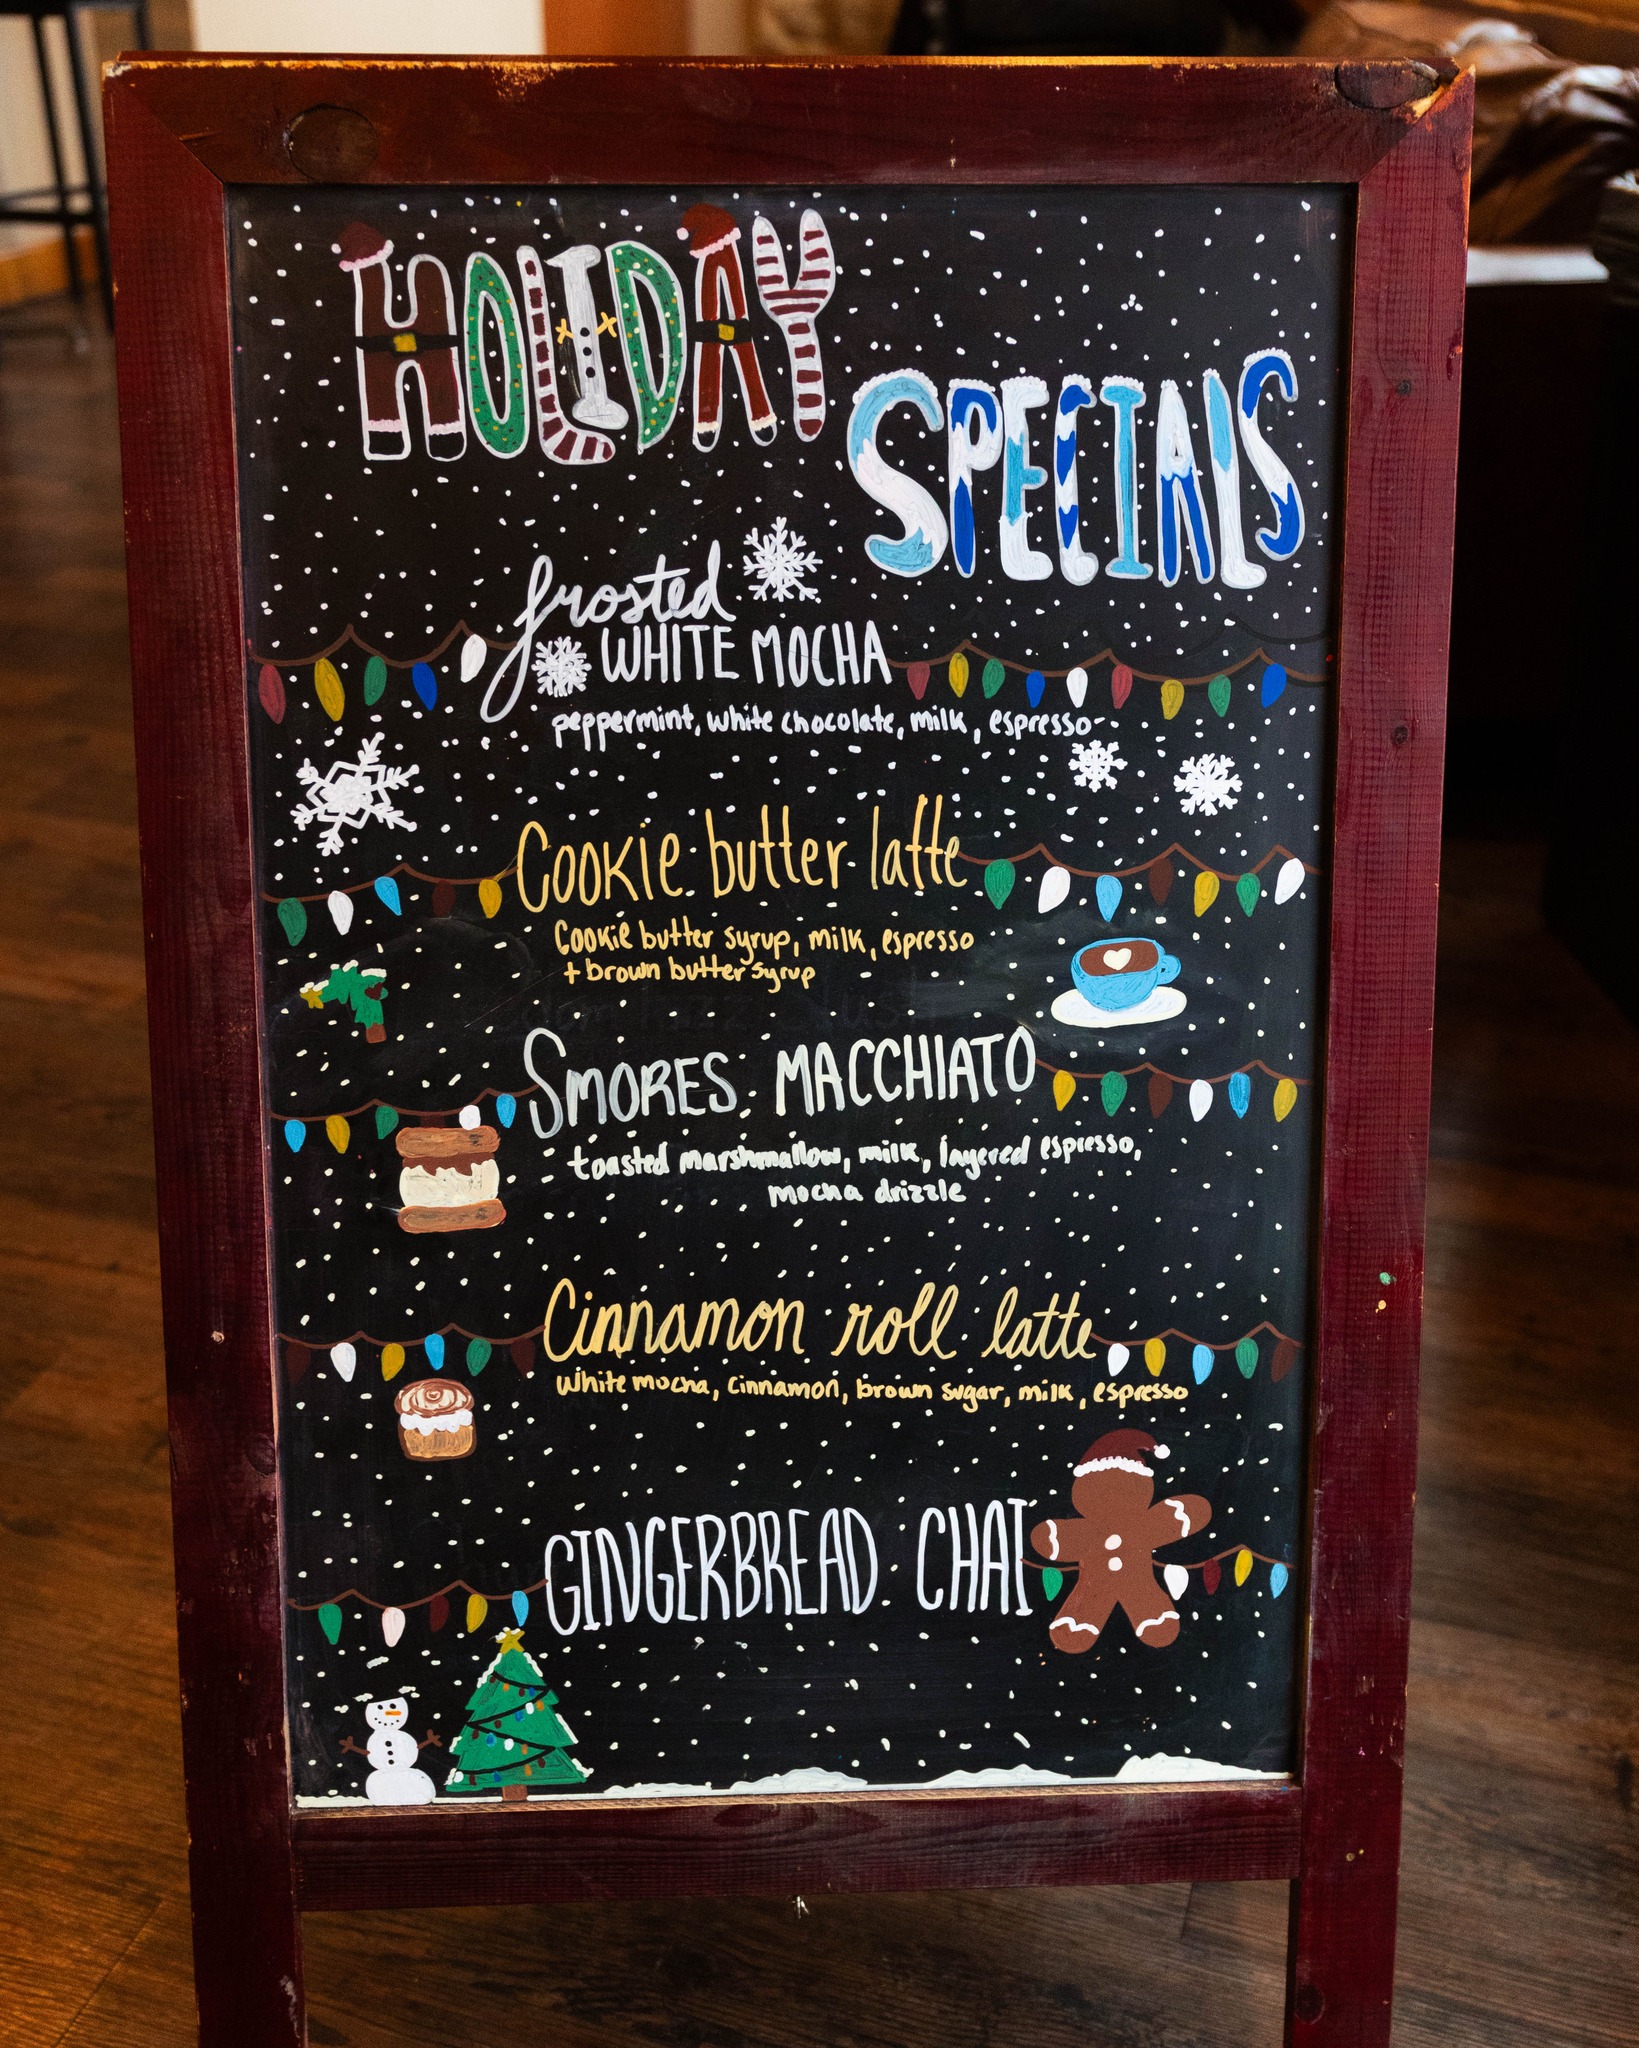 HOLIDAY
SPECIALS
frosted
WHITE MOCHA
peppermint, white chocolate, milk, espresso
Cookie butter latte
Cookie butter syrup, milk, espresso
+ brown butter syrup
SMORES MACCHIATO
toasted marshmallow, milk, layered espresso,
mocha drizzle
Cinnamon roll latte
White mocha, cinnamon, brown sugar, milk, espresso
GINGERBREAD CHAI